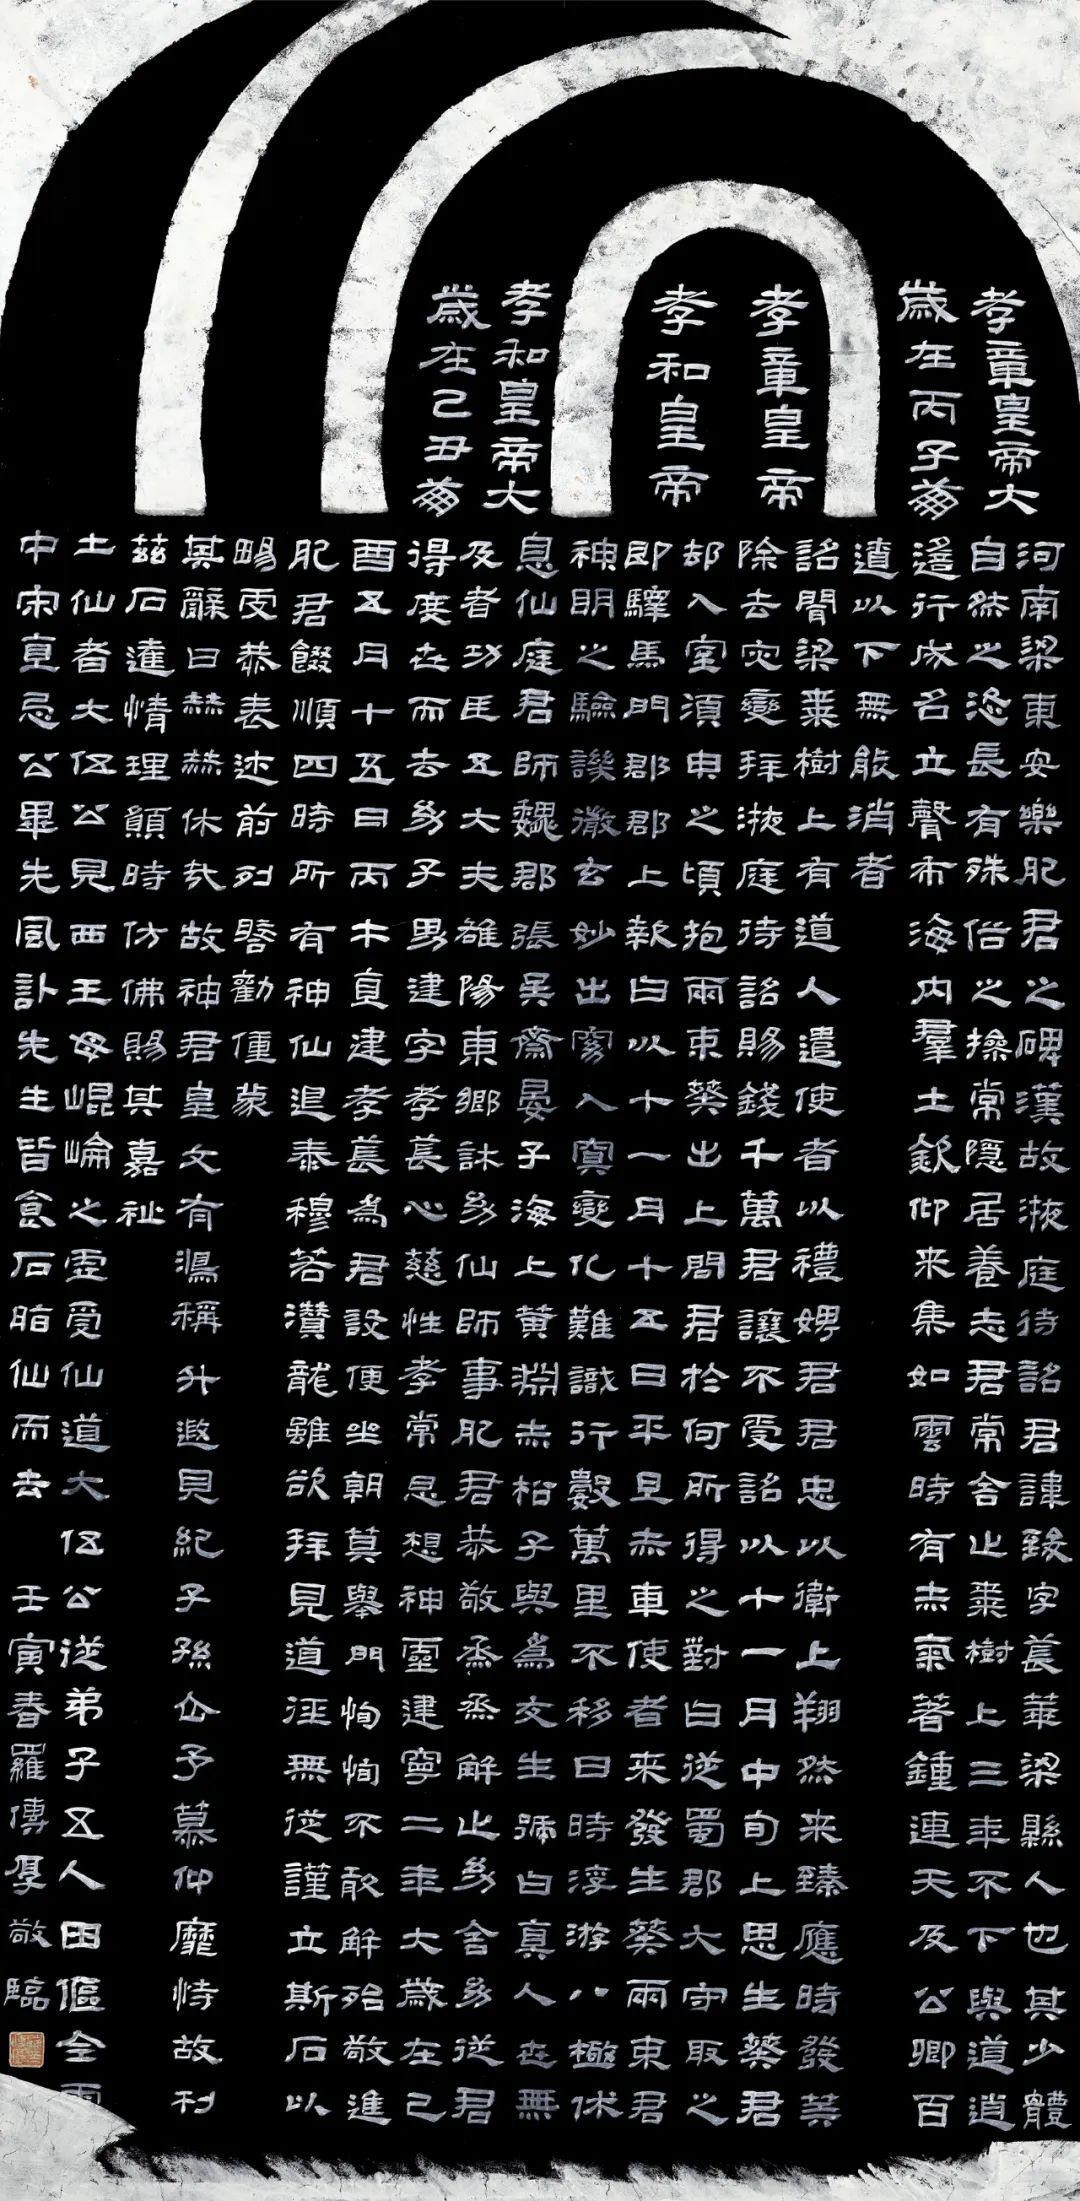 孝章皇帝大
歲在丙子崩
孝章皇帝
孝和皇帝
孝和皇帝大
歲在己丑崩
河南梁東安樂肥君之碑漢故掖庭待詔君諱致字萇華梁縣人也其少體
自然之恣長有殊俗之操常隱居養志君常舍止棗樹上三年不下與道逍
遙行成名立聲布海內羣士欽仰来集如雲時有赤氣著鐘連天及公卿百
遼以下無能消者
詔聞梁棗樹上有道人遣使者以禮娉君君忠以衛上翔然来臻應時發筭
除去灾變拜掖庭待詔賜錢千萬君讓不受詔以十一月中旬上思生葵君
却入室須臾之頃抱兩束葵出上問君於何所得之對曰從蜀郡大守取之
即驛馬問郡郡上報曰以十一月十五日平旦赤車使者来發生葵兩束君
神明之驗譏徹玄妙出窈入冥變化難識行數萬里不移日時浮游八極休
息仙庭君師魏郡張吳齋晏子海上黃淵赤松子與為友生號曰真人世無
及者功臣五大夫雒陽東鄉許幼仙師事肥君恭敬烝烝解止幼舍幼從君
得度世而去幼子男建字孝萇心慈性孝常思想神靈建寧二年大歲在己
酉五月十五日丙午直建孝萇為君設便坐朝莫舉門恂恂不敢解殆敬進
肥君餟順四時所有神仙退泰穆若潛龍雖欲拜見道徑無從謹立斯石以
暢虔恭表述前列啓勸僮蒙
其辭曰赫赫休哉故神君皇父有鴻稱升遐見紀子孫企予慕仰靡恃故刊
茲石達情理願時仿佛賜其嘉祉
土仙者大伍公見西王母崐崘之虛受仙道大伍公從弟子五人田傴全雨
中宋直忌公畢先風許先生皆食石脂仙而去 壬寅春羅傳厚敬臨